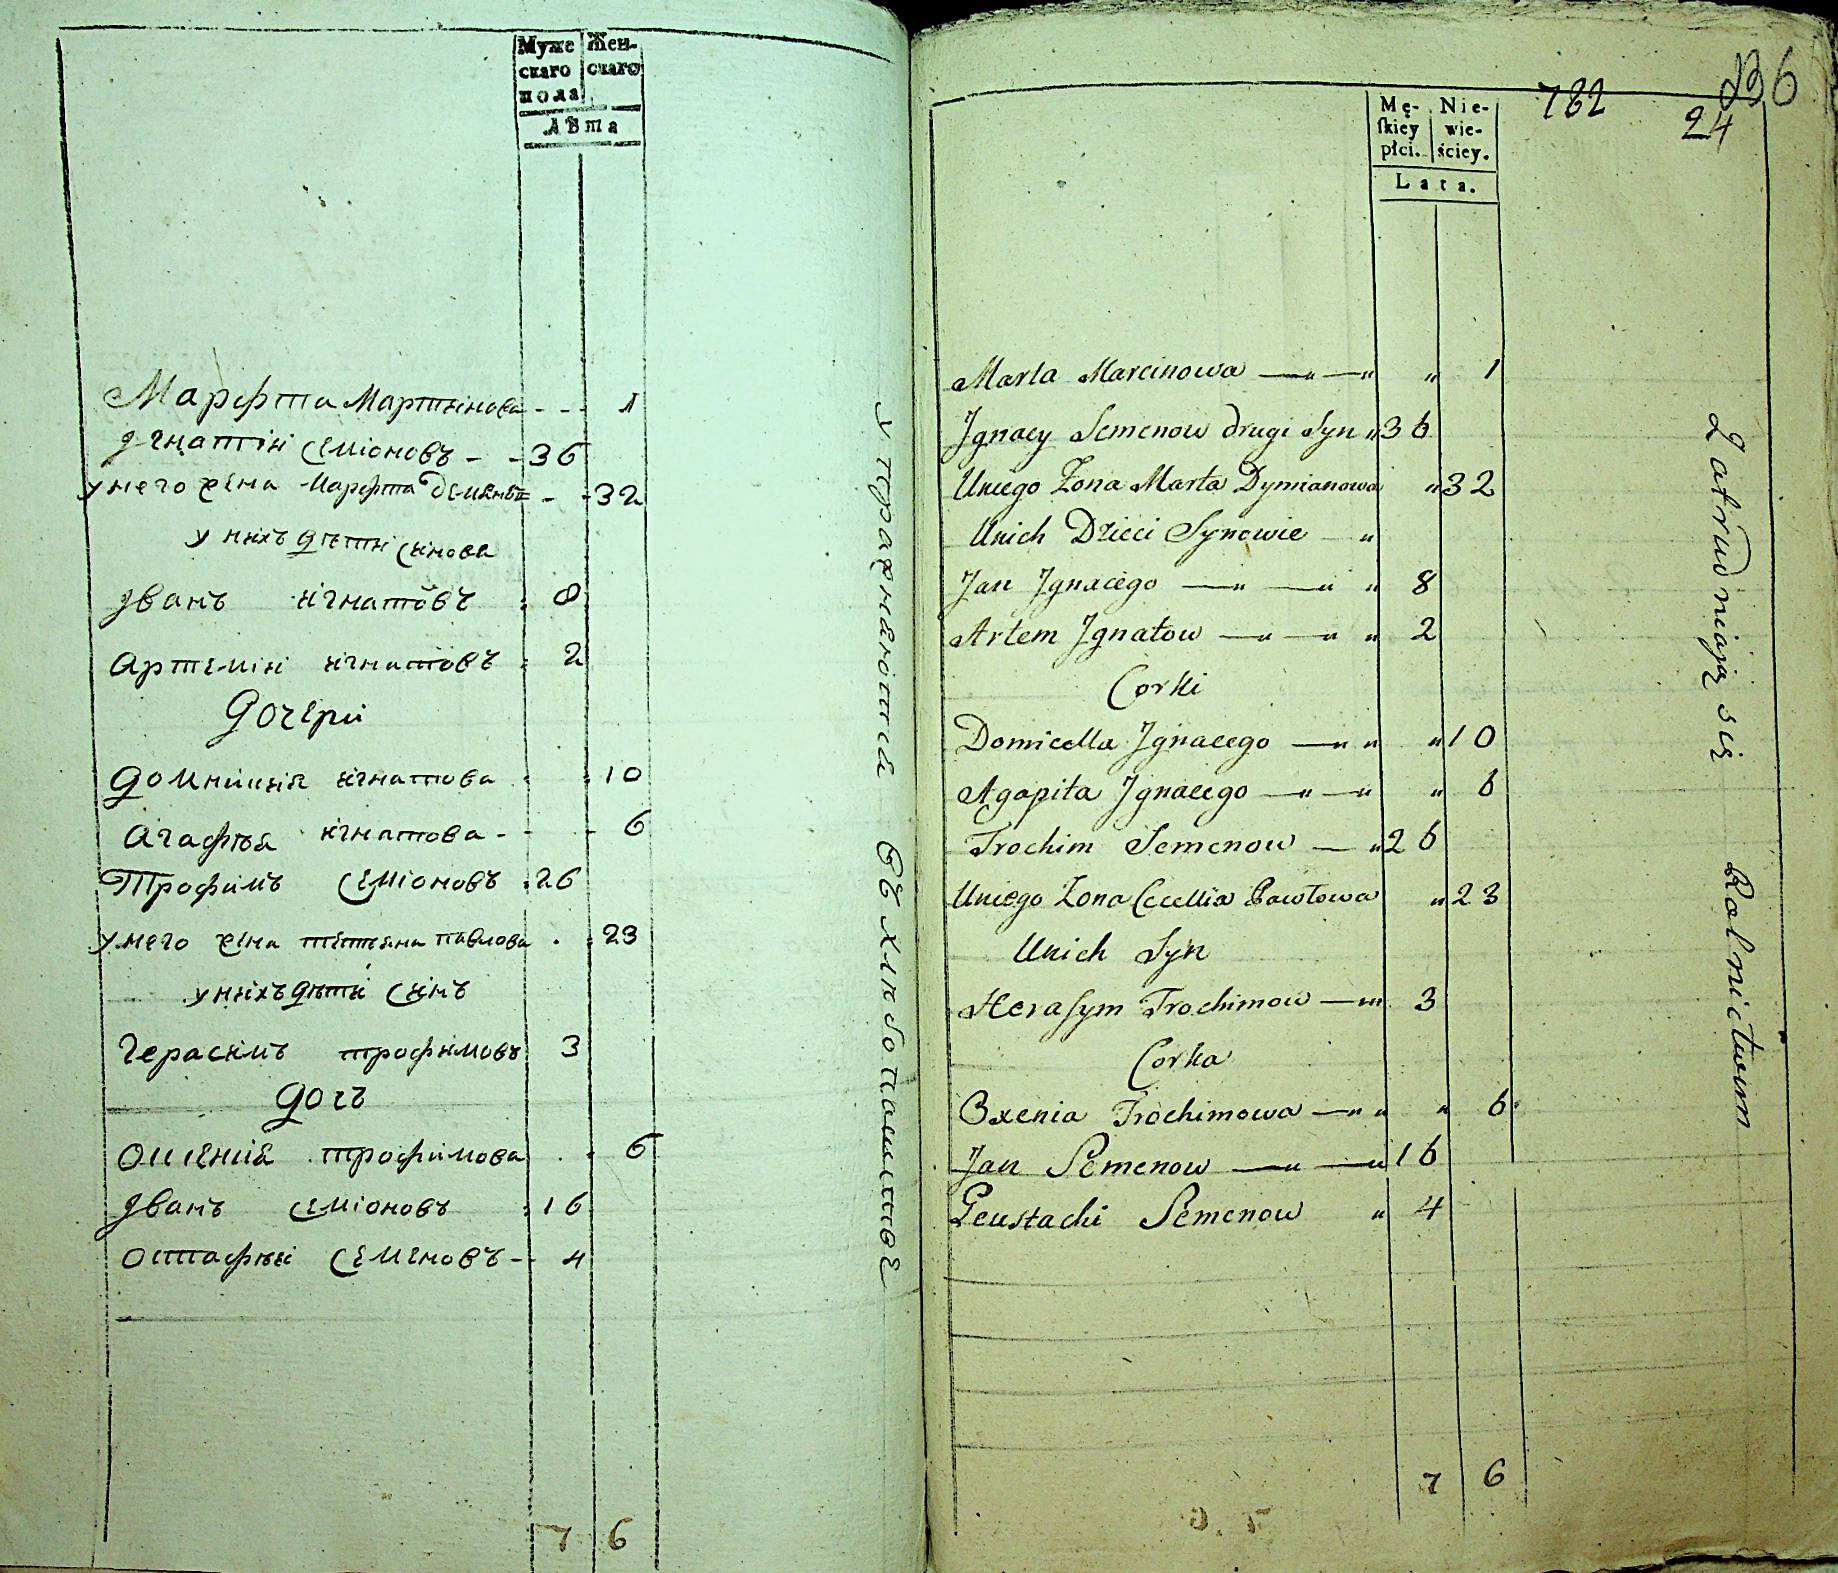 Муже Жен-
скаго скаго
пола
Лѣта
Марфта Мартинова - - - 1
Игнатіи Семіоновъ - - 36
у него жена Марфта - - 32
у нихъ дѣти синова
Іванъ игнатовъ : 8
Артеміи игнатовъ : 2
Дочери
Домникія игнатова : : 10
Агафія игнатова - - - 6
Трофимъ Семіоновъ : 26
у него жена тетяна павлова . : 23
у нихъ дѣти синъ
Герасимъ трофимовъ 3
дочъ
Ошгенія трофимова . - 6
Іванъ семіоновъ : 16
Остафѣи Семеновъ - - 4
7 6
упражнаются въ хлѣбопашствѣ
782
236
24
Mę- Nie-
skiey wie-
płci. ściey.
Lata.
Marta Marcinowa — „ — „ „ 1
Jgnacy Semenow drugi Syn „ 36
Uniego Żona Marta Dymianowa „ 32
Unich Dzieci Synowie — „
Jan Jgnacego — „ — „ „ 8
Artem Jgnatow — „ — „ „ 2
Corki
Domicella Jgnacego — „ „ „ 10
Agapita Jgnacego — „ — „ „ 6
Trochim Semenow — „ 26
Uniego Żona Cecellia Pawłowa „ 23
Unich Syn
Herasym Trochimow — „ 3
Corka
Oxenia Trochimowa — „ „ „ 6
Jan Semenow — „ — „ 16
Jeustachi Semenow „ 4
7 6
Zatrudniają się Rolnictwem